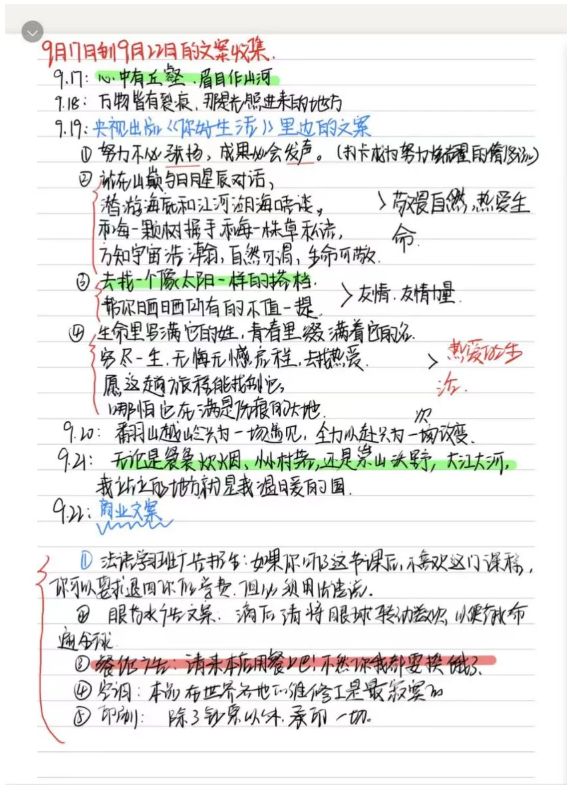 9月17日到9月22日的文案收集.
9.17: 心中有丘壑.眉目作山河
9.18: 万物皆有裂痕,那是光照进来的地方
9.19:央视出版《你好生活》里边的文案
①努力不必张扬,成果必会发声。(打卡成为努力
②站在山巅与日月星辰对话,
潜游海底和江河湖海晤谈,
和每一颗树握手和每一株草私语,
方知宇宙浩瀚,自然可谓,生命可敬.
>敬畏自然,热爱生
命.
③去找一个像太阳一样的搭档.
帮你晒晒所有的不值一提.
>友情.友情力量.
④生命里写满它的姓,青春里缀满着它的名.
穷尽一生,无悔无憾启程,去找热爱.
愿这趟旅程能找到它,
哪怕它在满是伤痕的大地.
>热爱的生
活.
9.20:翻山越岭只为一场遇见,全力以赴只为一次改变.
9.21:无论是袅袅炊烟、小小村落,还是崇山沃野,大江大河,
我站立的地方就是我温暖的国.
9.22:商业文案
①法语学习班广告招生:如果你听了这节课后,不喜欢这门课程,
你可以要求退回你的学费.但必须用法语说.
②眼药水广告文案. 滴后请将眼球转动数次,以便
遍全球
③餐饮广告:请来本店用餐吧!不然你我都要挨饿了.
④空调:本品在世界各地的维修工是最寂寞的
⑤印刷: 除了钞票以外.承印一切。